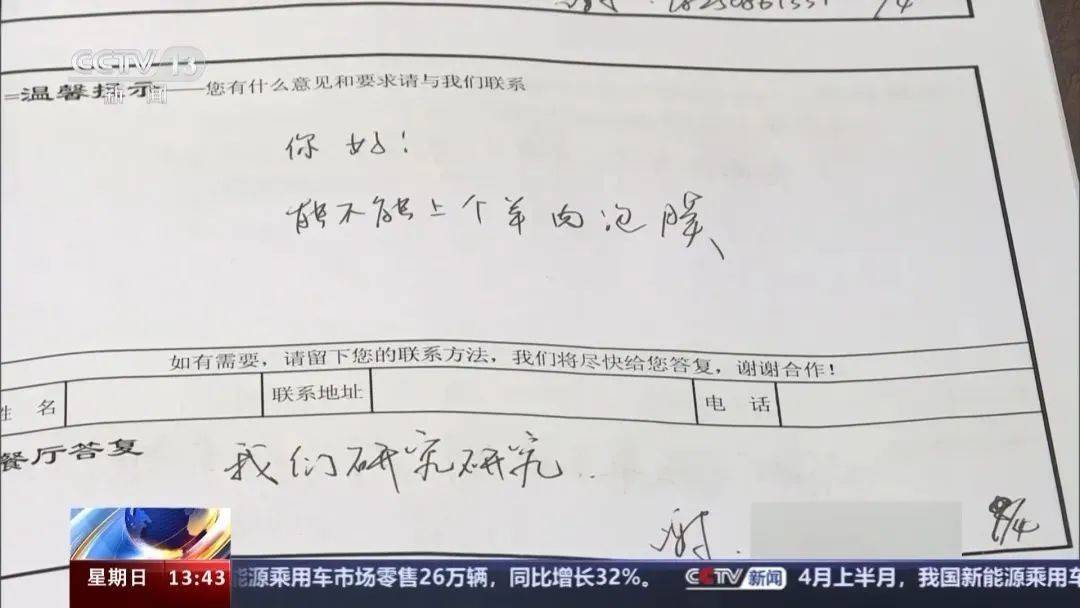 CCTV 13
新闻
温馨提示——您有什么意见和要求请与我们联系
你好!
能不能上个羊肉泡膜
如有需要，请留下您的联系方法，我们将尽快给您答复，谢谢合作!
姓 名
联系地址
电 话
餐厅答复
我们研究研究..
谢.
9/4
星期日 13:43
能源乘用车市场零售26万辆，同比增长32%。 CCTV 新闻 4月上半月，我国新能源乘用车